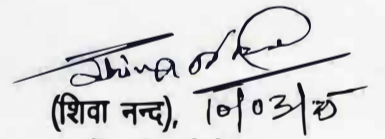 (शिवा नन्द), 10/03/25